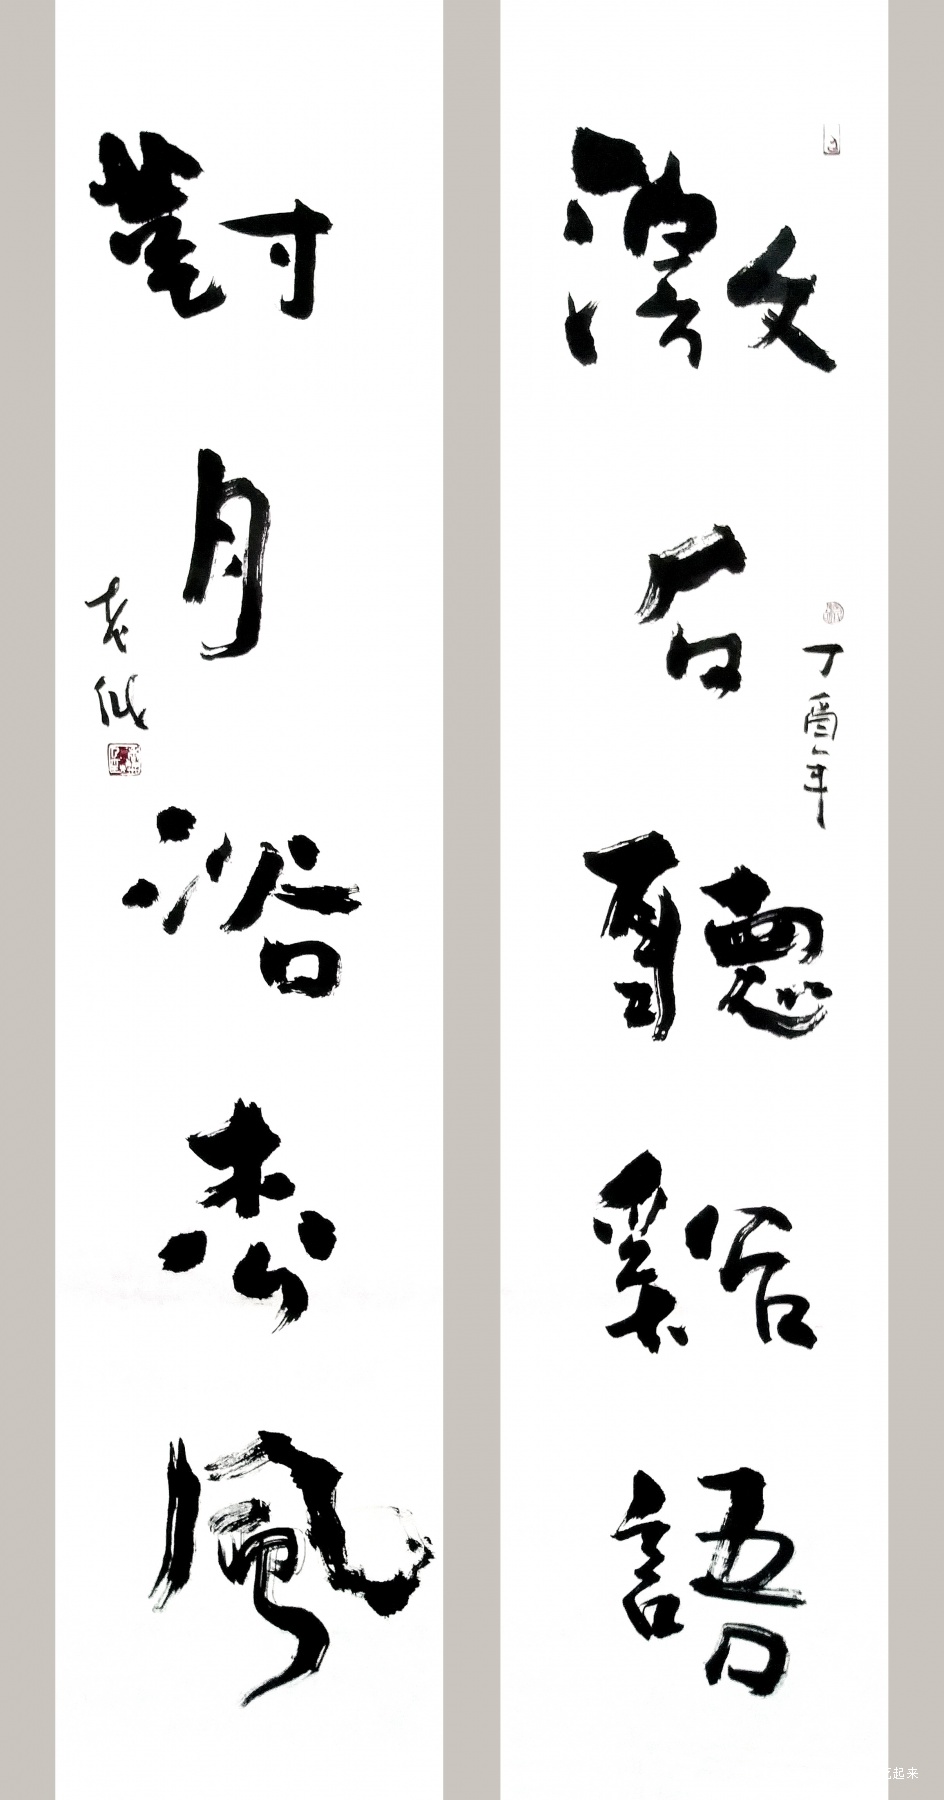 激石聽谿語
丁酉年
對月浴杏風
老低
起来